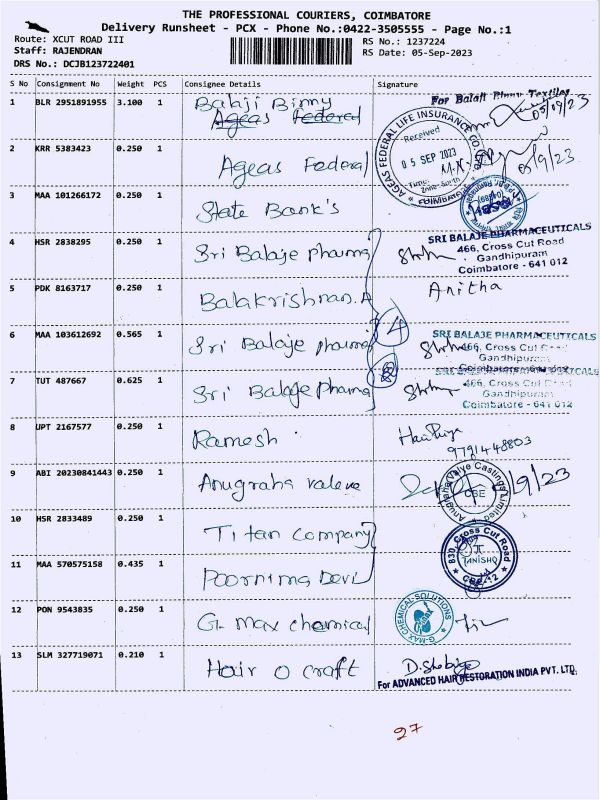 THE PROFESSIONAL COURIERS, COIMBATORE
Delivery Runsheet - PCX - Phone No.:0422-3505555 - Page No.:1
Route: XCUT ROAD III
RS No.: 1237224
Staff: RAJENDRAN
RS Date: 05-Sep-2023
DRS No.: DCJB123722401
S No Consignment No Weight PCS Consignee Details Signature
1 BLR 2951891955 3.100 1 Balaji Binny
Ageas Federal
For Balaji Binny Textiles
05/09/23
2 KRR 5383423 0.250 1 Ageas Federal
AGEAS FEDERAL LIFE INSURANCE CO.
Received
05 SEP 2023
Time:
Zone-South
COIMBATORE
05/9/23
3 MAA 101266172 0.250 1 State Bank's
4 HSR 2838295 0.250 1 Sri Balaje pharma
SRI BALAJE PHARMACEUTICALS
466, Cross Cut Road
Gandhipuram
Coimbatore - 641 012
5 PDK 8163717 0.250 1 Balakrishnan.A
Anitha
4
6 MAA 103612692 0.565 1 Sri Balaje pharma
SRI BALAJE PHARMACEUTICALS
466, Cross Cut
Gandhipuram
Coimbatore - 641 012
7 TUT 487667 0.625 1 Sri Balaje Pharma
SRI BALAJE PHARMACEUTICALS
466, Cross Cut
Gandhipuram
Coimbatore - 641 012
8 UPT 2167577 0.250 1 Ramesh
Hari Priya
9791448803
9 ABI 20230841443 0.250 1 Anugraha Valeve
Anugraha Valve Castings Limited
CBE
5/9/23
10 HSR 2833489 0.250 1 Titan Company
11 MAA 570575158 0.435 1 Poornima Devi
830, Cross Cut Road
TANISHQ
CBE-12
12 PON 9543835 0.250 1 G-max chemical
G-MAX CHEMICAL SOLUTIONS
13 SLM 327719071 0.210 1 Hair O Craft
D. Shobiya
For ADVANCED HAIR RESTORATION INDIA PVT. LTD.
27